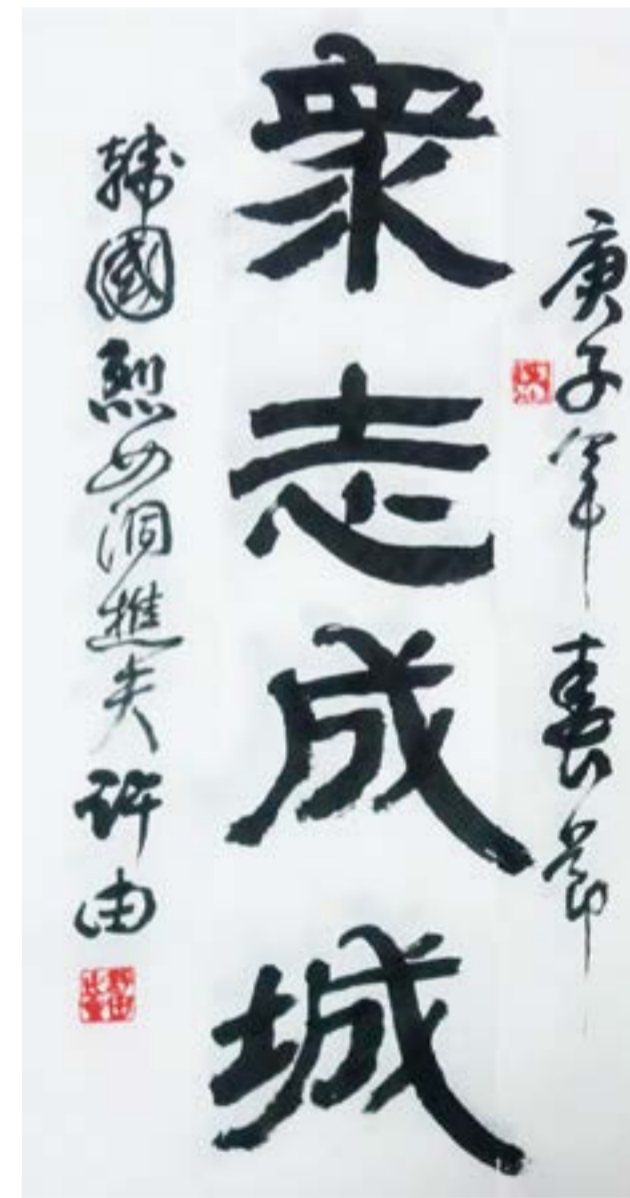 庚子年春節
衆志成城
韓國烈女洞樵夫許由